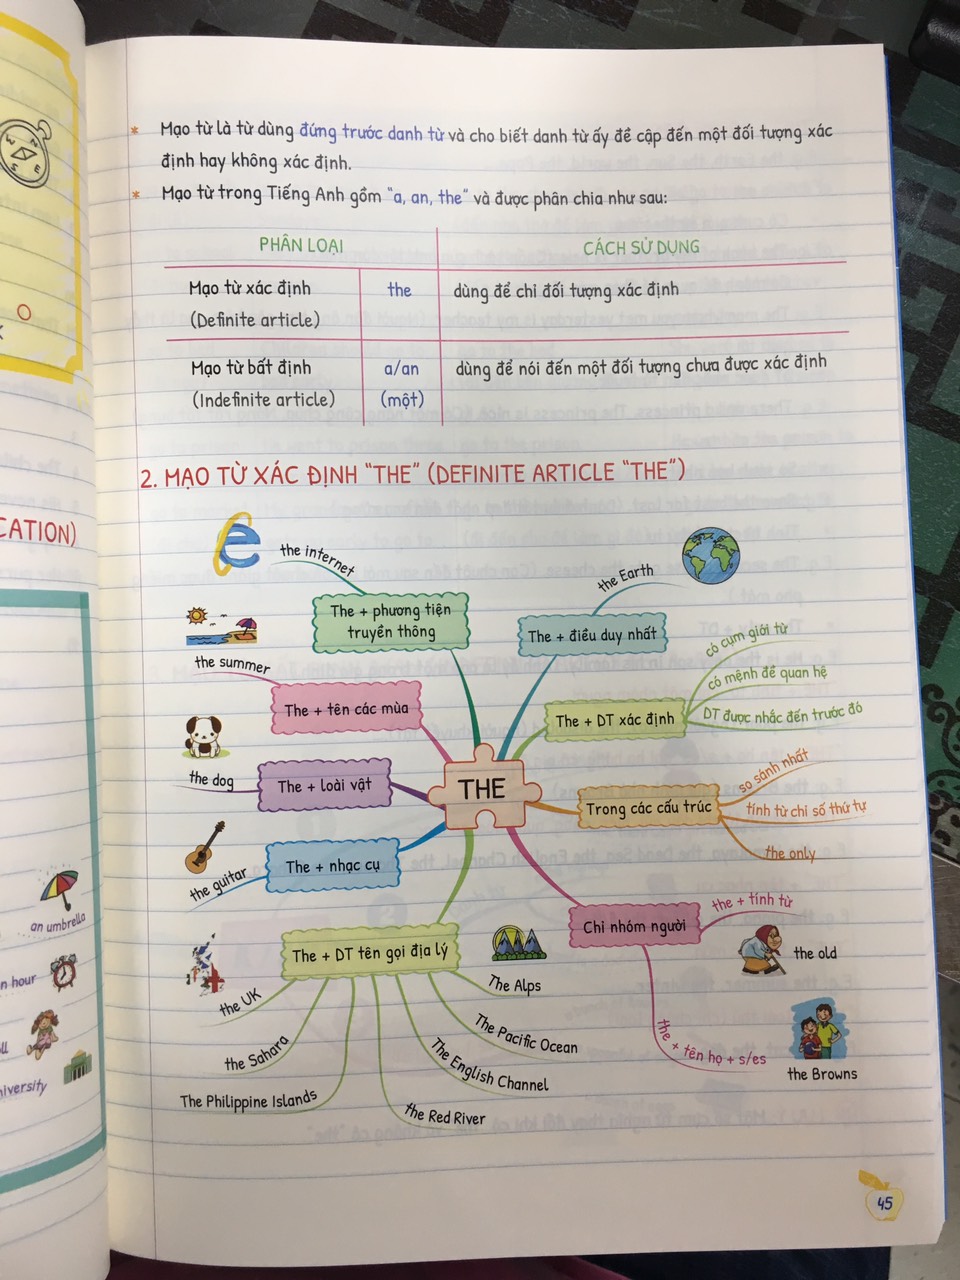 * Mạo từ là từ dùng đứng trước danh từ và cho biết danh từ ấy đề cập đến một đối tượng xác
định hay không xác định.
* Mạo từ trong Tiếng Anh gồm "a, an, the" và được phân chia như sau:
PHÂN LOẠI
CÁCH SỬ DỤNG
Mạo từ xác định
(Definite article)
the
dùng để chỉ đối tượng xác định
Mạo từ bất định
(Indefinite article)
a/an
(một)
dùng để nói đến một đối tượng chưa được xác định
2. MẠO TỪ XÁC ĐỊNH "THE" (DEFINITE ARTICLE "THE")
the internet
The + phương tiện
truyền thông
the summer
The + tên các mùa
the dog
The + loài vật
the guitar
The + nhạc cụ
THE
the Earth
The + điều duy nhất
The + DT xác định
có cụm giới từ
có mệnh đề quan hệ
DT được nhắc đến trước đó
Trong các cấu trúc
so sánh nhất
tính từ chỉ số thứ tự
the only
Chỉ nhóm người
the + tính từ
the old
the + tên họ + s/es
the Browns
The + DT tên gọi địa lý
the UK
the Sahara
The Philippine Islands
the Red River
The English Channel
The Pacific Ocean
The Alps
45
CATION)
an umbrella
n hour
niversity
N
E
S
W